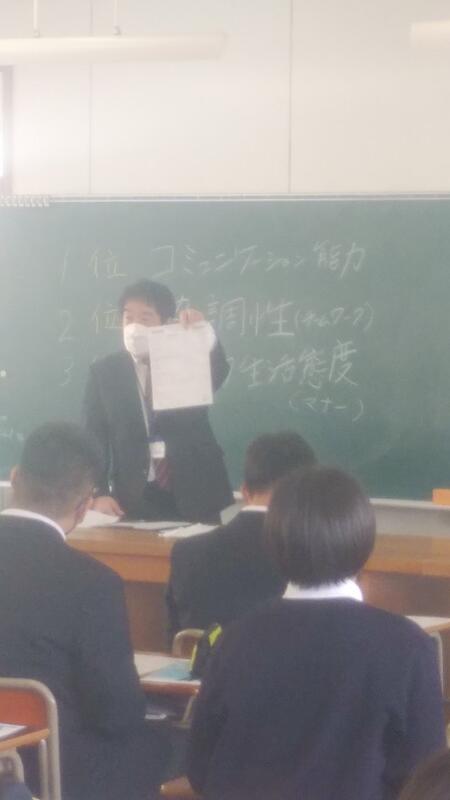 1位 コミュニケーション能力
2位 協調性(チームワーク)
3 生活態度
(マナー)